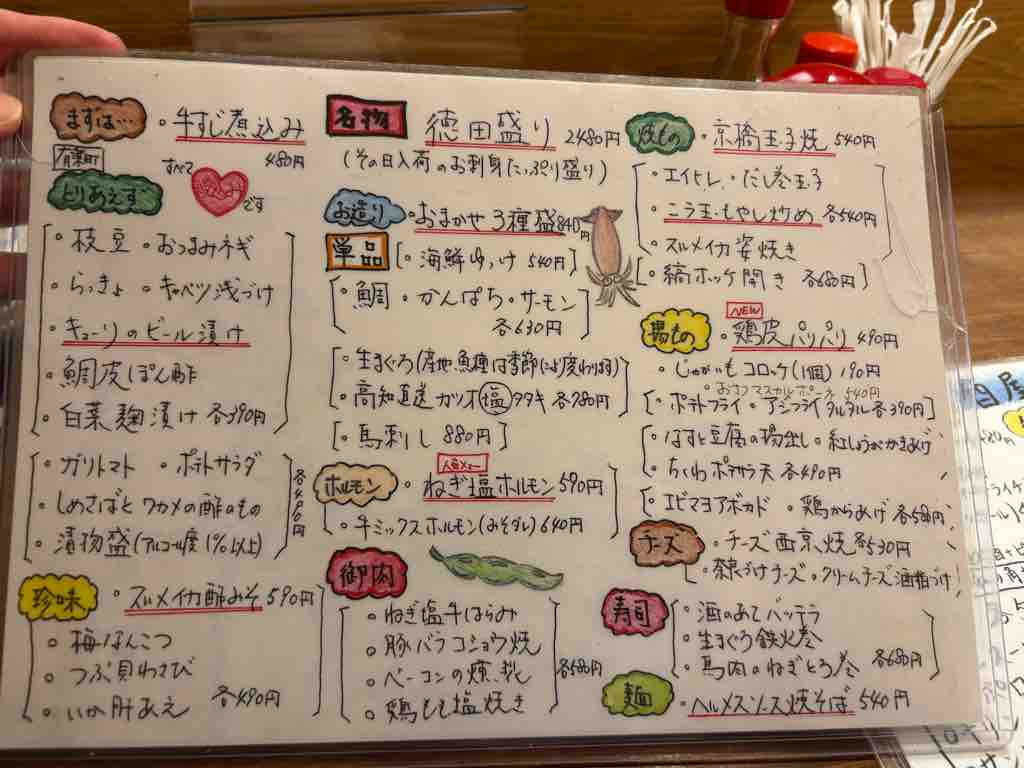 まずは…
・牛すじ煮込み
480円
有楽町
とりあえず
すべて
です
・枝豆 ・おつまみネギ
・らっきょ ・キャベツ浅づけ
・キューリのビール漬け
・鯛皮ぽん酢
・白菜麹漬け 各390円
・ガリトマト ・ポテトサラダ
・しめさばとワカメの酢のもの
・漬物盛(アルコール度1%以上)
各490円
珍味
・スルメイカ酢みそ 590円
○梅なんこつ
○つぶ貝わさび
○いか肝あえ 各490円
名物
徳田盛り 2480円
(その日入荷のお刺身たっぷり盛り)
お造り
・おまかせ3種盛 840円
単品
・海鮮ゆっけ 540円
・鯛 ・かんぱち・サーモン
各630円
・生まぐろ(産地、魚種は季節により変わります)
・高知直送カツオ塩タタキ 各780円
・馬刺し 880円
ホルモン
人気メニュー
・ねぎ塩ホルモン 590円
・牛ミックスホルモン(みそダレ) 640円
御肉
○ねぎ塩牛はらみ
○豚バラコショウ焼
○ベーコンの燻製
○鶏もも塩焼き
各680円
焼もの
・京橋玉子焼 540円
・エイヒレ ・だし巻玉子
・ニラ玉・もやし炒め 各540円
・スルメイカ姿焼き
・縞ホッケ開き 各680円
揚もの
NEW
・鶏皮パリパリ 490円
・じゃがいもコロッケ(1個) 190円
・おさつマスカルポーネ 540円
・ポテトフライ ・アジフライタルタル 各390円
・なすと豆腐の揚出し ・紅しょうがかきあげ
・ちくわポテサラ天 各490円
・エビマヨアボカド ・鶏からあげ 各580円
チーズ
・チーズ西京焼 各530円
・奈良づけチーズ ・クリームチーズ酒粕づけ
寿司
○酒のあてバッテラ
○生まぐろ鉄火巻
○馬肉のねぎとろ巻 各680円
麺
・ヘルメスソース焼そば 540円